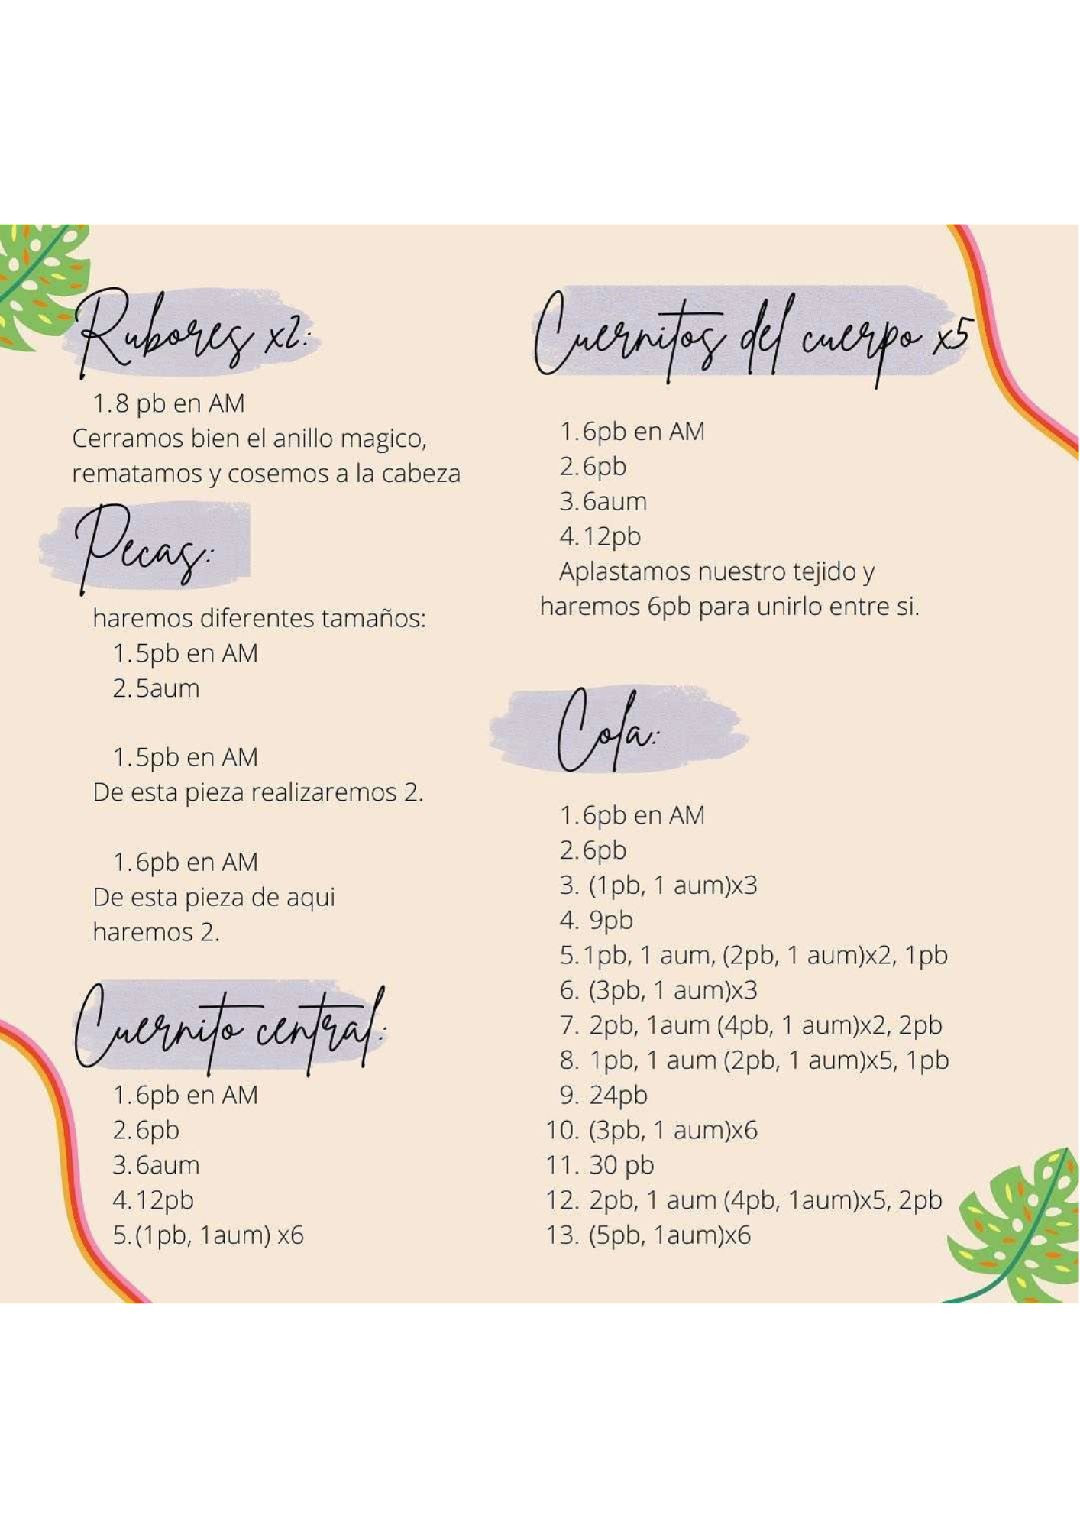 Rubores x2:
1.8 pb en AM
Cerramos bien el anillo magico,
rematamos y cosemos a la cabeza
Pecas:
haremos diferentes tamaños:
1.5pb en AM
2.5aum
1.5pb en AM
De esta pieza realizaremos 2.
1.6pb en AM
De esta pieza de aqui
haremos 2.
Cuernito central:
1.6pb en AM
2.6pb
3.6aum
4.12pb
5.(1pb, 1aum) x6
Cuernitos del cuerpo x5
1.6pb en AM
2.6pb
3.6aum
4.12pb
Aplastamos nuestro tejido y
haremos 6pb para unirlo entre si.
Cola:
1.6pb en AM
2.6pb
3. (1pb, 1 aum)x3
4. 9pb
5.1pb, 1 aum, (2pb, 1 aum)x2, 1pb
6. (3pb, 1 aum)x3
7. 2pb, 1aum (4pb, 1 aum)x2, 2pb
8. 1pb, 1 aum (2pb, 1 aum)x5, 1pb
9. 24pb
10. (3pb, 1 aum)x6
11. 30 pb
12. 2pb, 1 aum (4pb, 1aum)x5, 2pb
13. (5pb, 1aum)x6